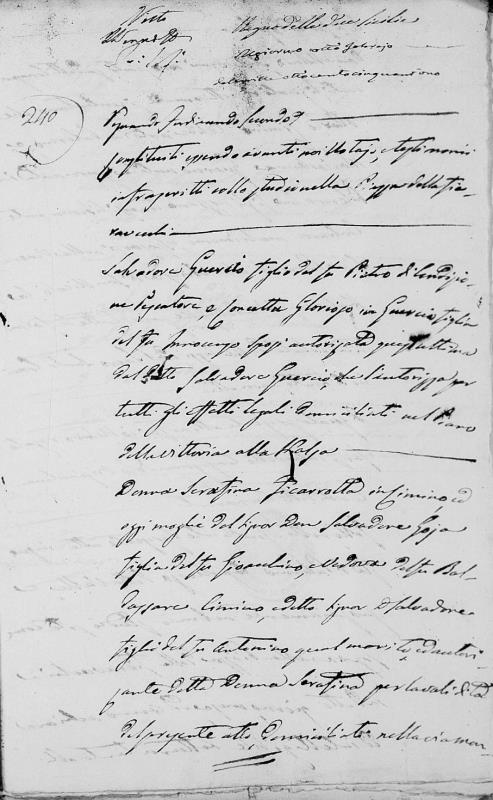 Regno delle due Sicilie
Il giorno otto Febrajo
mille ottocentocinquantuno
240
Regnando Ferdinando Secondo
Costituiti essendo avanti noi Notajo, e degli
infrascritti collo studio nella Piazza della
Salvadore Guercio figlio del fu Pietro di condizio-
ne Pescatore e Concetta Glorioso in Guercio figlia
del fu Innocenzo sposi autorizzata quest'ultima
dal detto Salvadore Guercio, che l'autorizza per
tutti gli effetti legali domiciliati nel Piano
della Vittoria alla Kalsa
Donna Serafina Picarrotta in Cimino, ed
oggi moglie del Signor Don Salvadore Goja
figlia del fu Gioachino, e vedova del fu Bal-
dassare Cimino, e detto Signor D. Salvadore
figlio del fu Antonino qual marito, ed autori-
zante detta Donna Serafina per la validità
del presente atto, domiciliati nella via